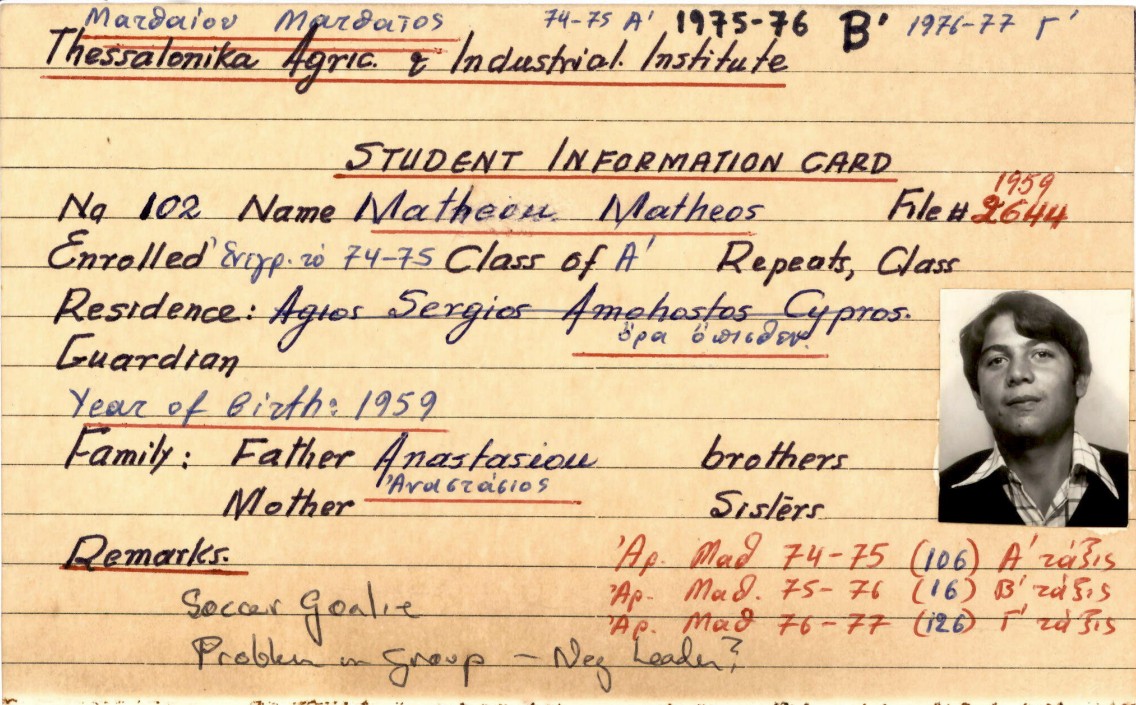 Ματθαίου Ματθαῖος 74-75 Α' 1975-76 Β' 1976-77 Γ'
Thessalonika Agric. & Industrial. Institute
STUDENT INFORMATION CARD
1959
No 102 Name Matheou Matheos File # 2644
Enrolled ἐνεγρ. τὸ 74-75 Class of Α' Repeats, Class
Residence: Agios Sergios Amohostos Cypros.
ὅρα ὄπισθεν.
Guardian
Year of Birth: 1959
Family: Father Anastasiou brothers
Ἀναστάσιος
Mother Sisters
Remarks.
Ἀρ. Μαθ 74-75 (106) Α' τάξις
Ἀρ. Μαθ. 75-76 (16) Β' τάξις
Ἀρ. Μαθ 76-77 (126) Γ' τάξις
Soccer Goalie
Problem in group - Neg Leader?